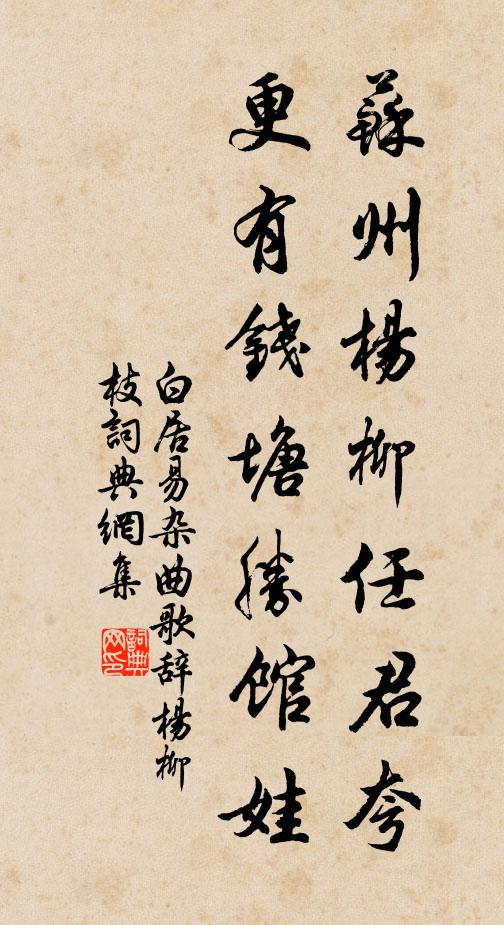 蘇州楊柳任君夸
更有錢塘勝館娃
白居易杂曲歌辞楊柳
枝詞典網集
詞典网印